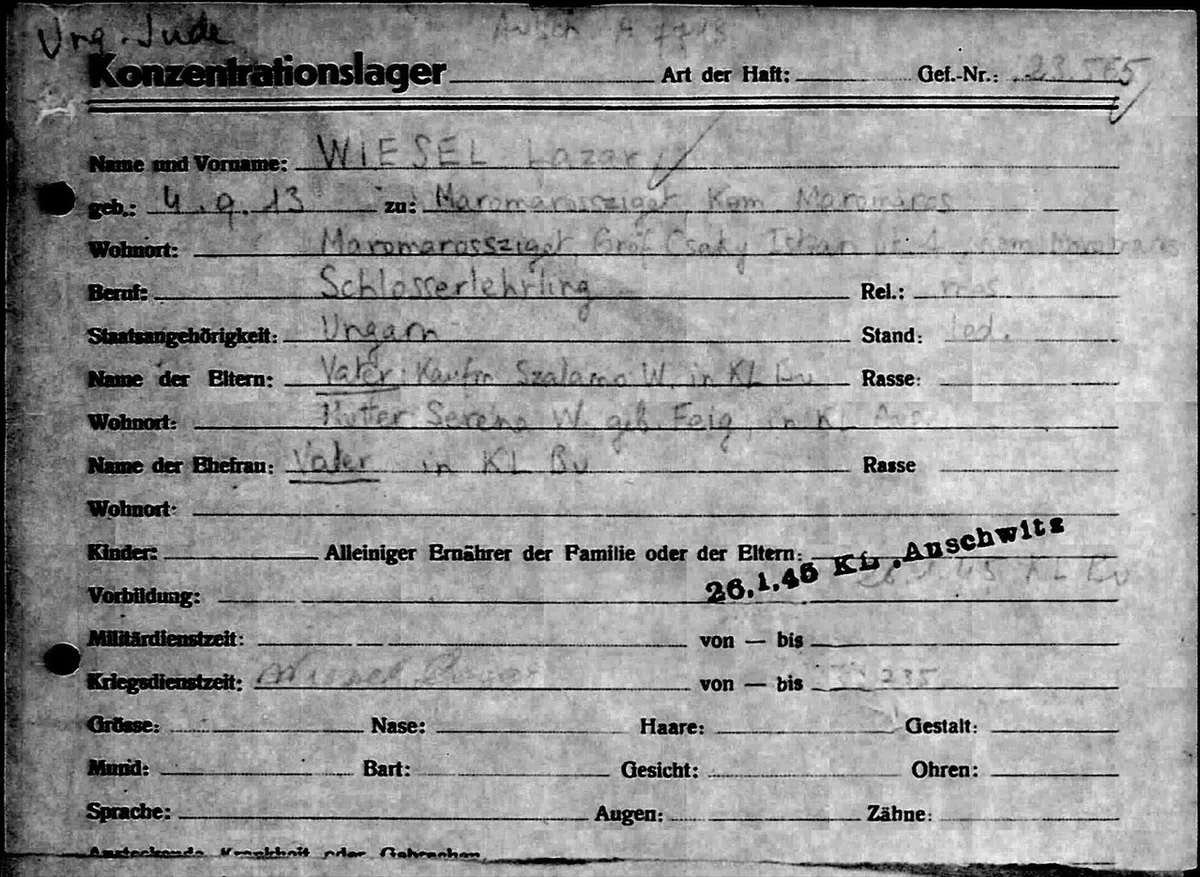 Ung. Jude Ausch A 7713
Konzentrationslager Art der Haft: Gef.-Nr.:
Name und Vorname: WIESEL Lazar
geb.: 4.9.13 zu: Maromarossziget, Kom Maromaros
Wohnort: Maromarossziget, Grof Csaky Istvan
Beruf: Schlosserlehrling Rel.: mos.
Staatsangehörigkeit: Ungarn Stand: led.
Name der Eltern: Vater: Kaufm Szalamo W. in KL Bu Rasse:
Wohnort: Mutter Serena W. geb. Feig, in KL
Name der Ehefrau: Vater in KL Bu Rasse
Wohnort:
Kinder: Alleiniger Ernährer der Familie oder der Eltern:
26.1.45 KL. Auschwitz
Vorbildung: 26.1.45 KL Bu
Militärdienstzeit: von — bis
Kriegsdienstzeit: von — bis
Grösse: Nase: Haare: Gestalt:
Mund: Bart: Gesicht: Ohren:
Sprache: Augen: Zähne:
Ansteckende Krankheit oder Gebrechen